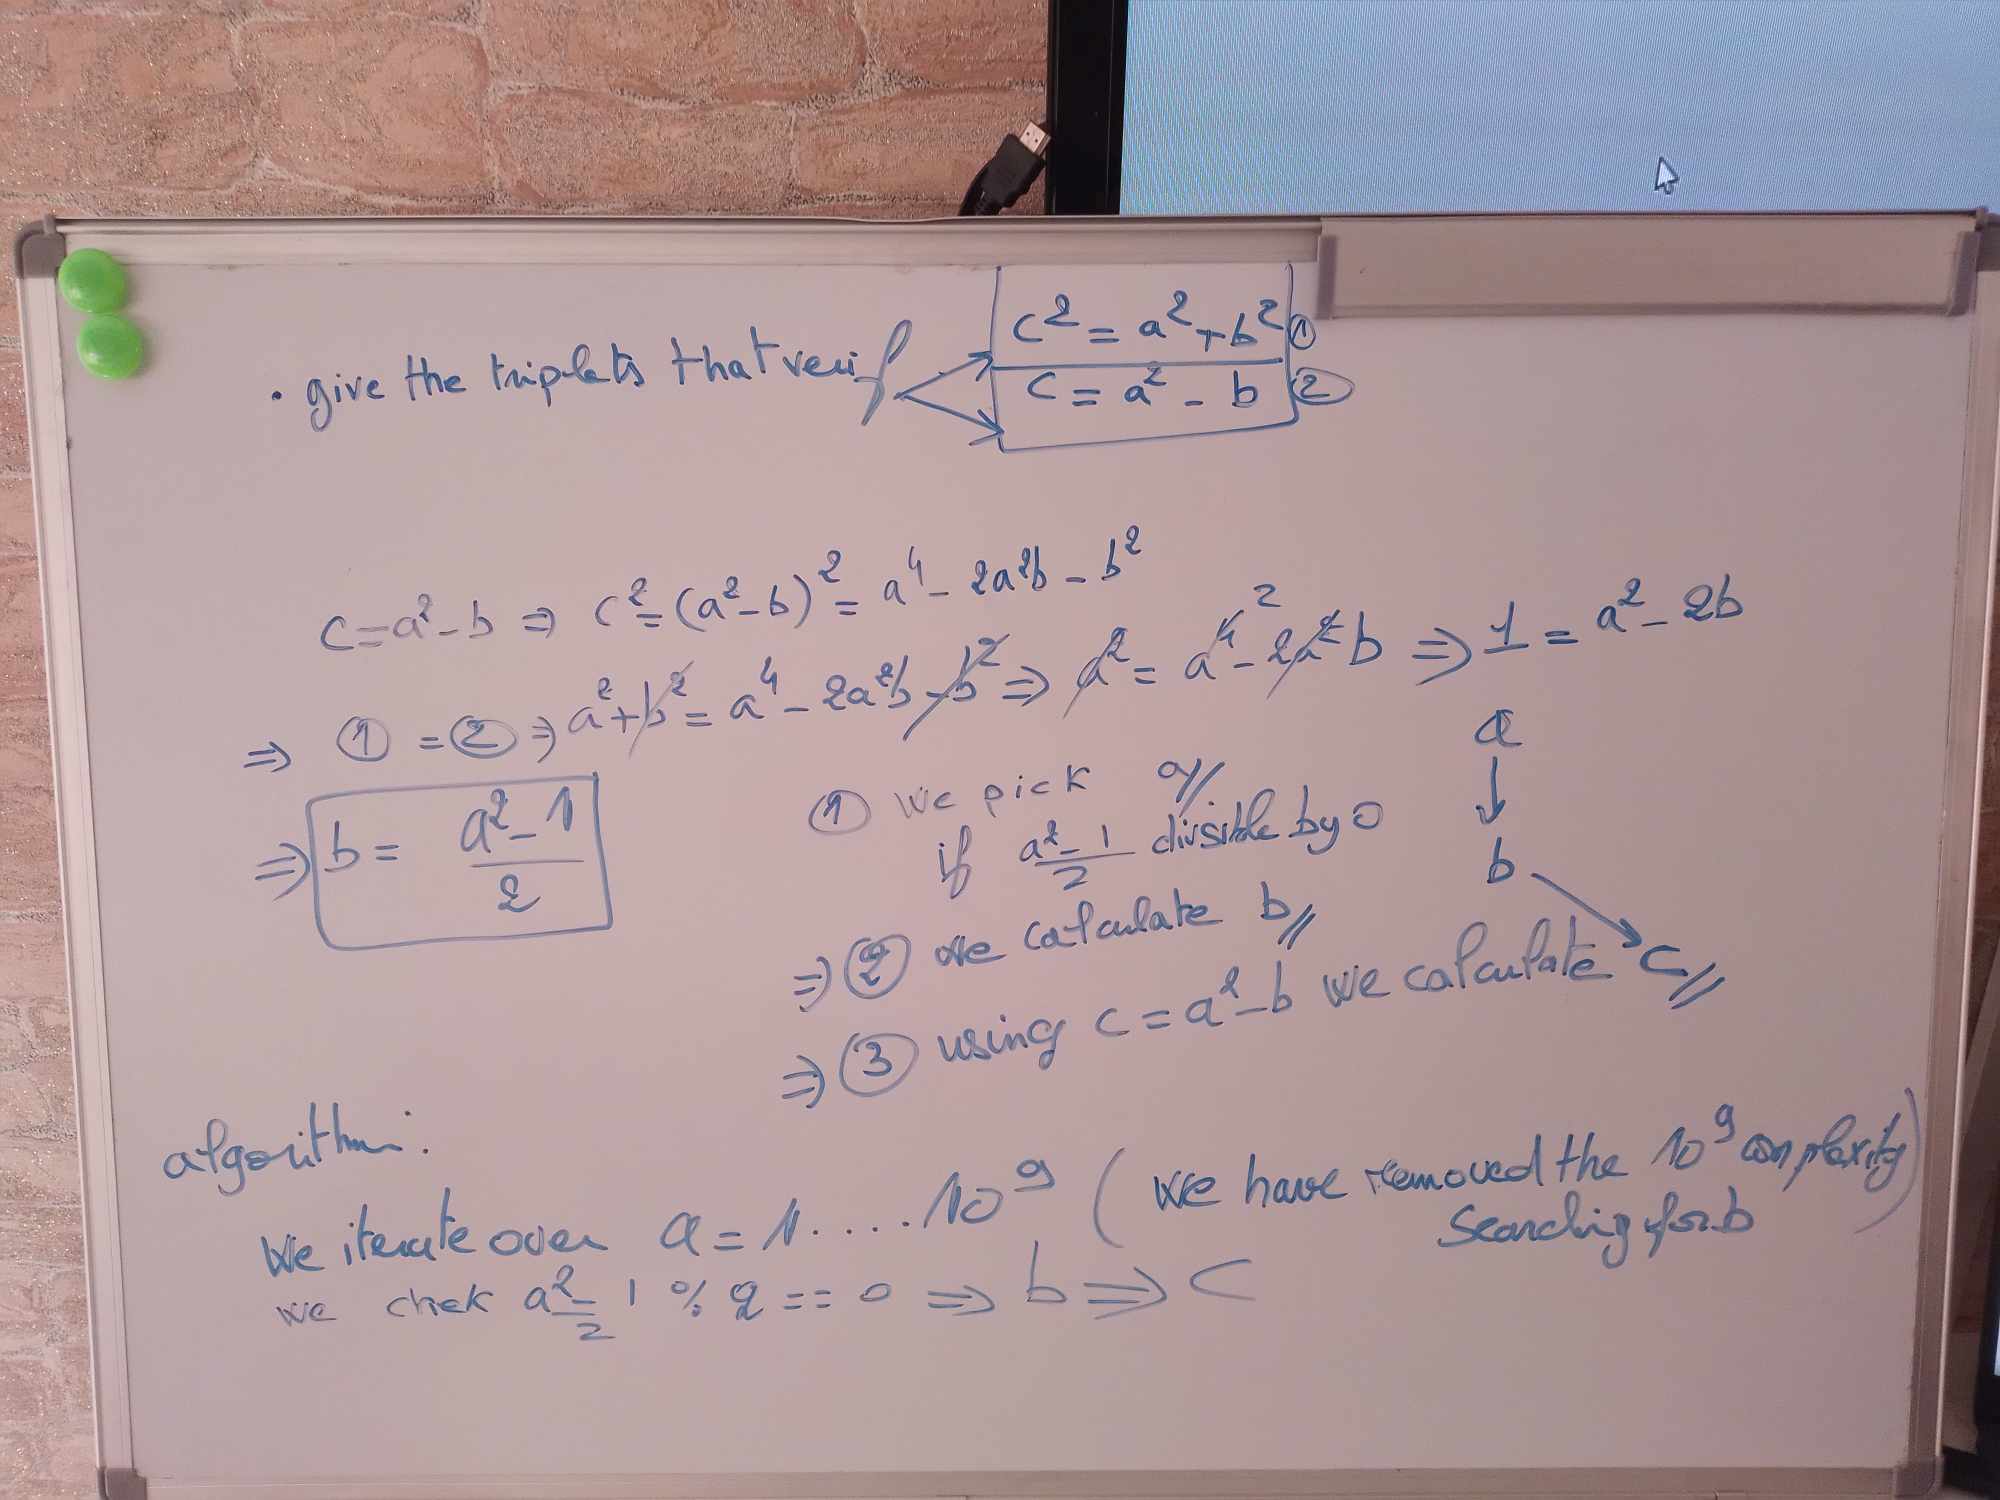 c² = a² + b² ①
• give the triplets that verif
c = a² - b ②
c = a² - b ⇒ c² = (a² - b)² = a⁴ - 2a²b - b²
⇒ ① = ② ⇒ a² + b² = a⁴ - 2a²b - b² ⇒ a² = a⁴ ² - 2a²b ⇒ 1 = a² - 2b
⇒ b = (a² - 1)/2
① we pick a//
if (a² - 1)/2 divisible by 0
⇒ ② we calculate b//
⇒ ③ using c = a² - b we calculate c//
a
↓
b
algorithm:
We iterate over a = 1.....10⁹ (we have removed the 10⁹ complexity
searching for b)
we chek (a² - 1)/2 % 2 == 0 ⇒ b ⇒ c